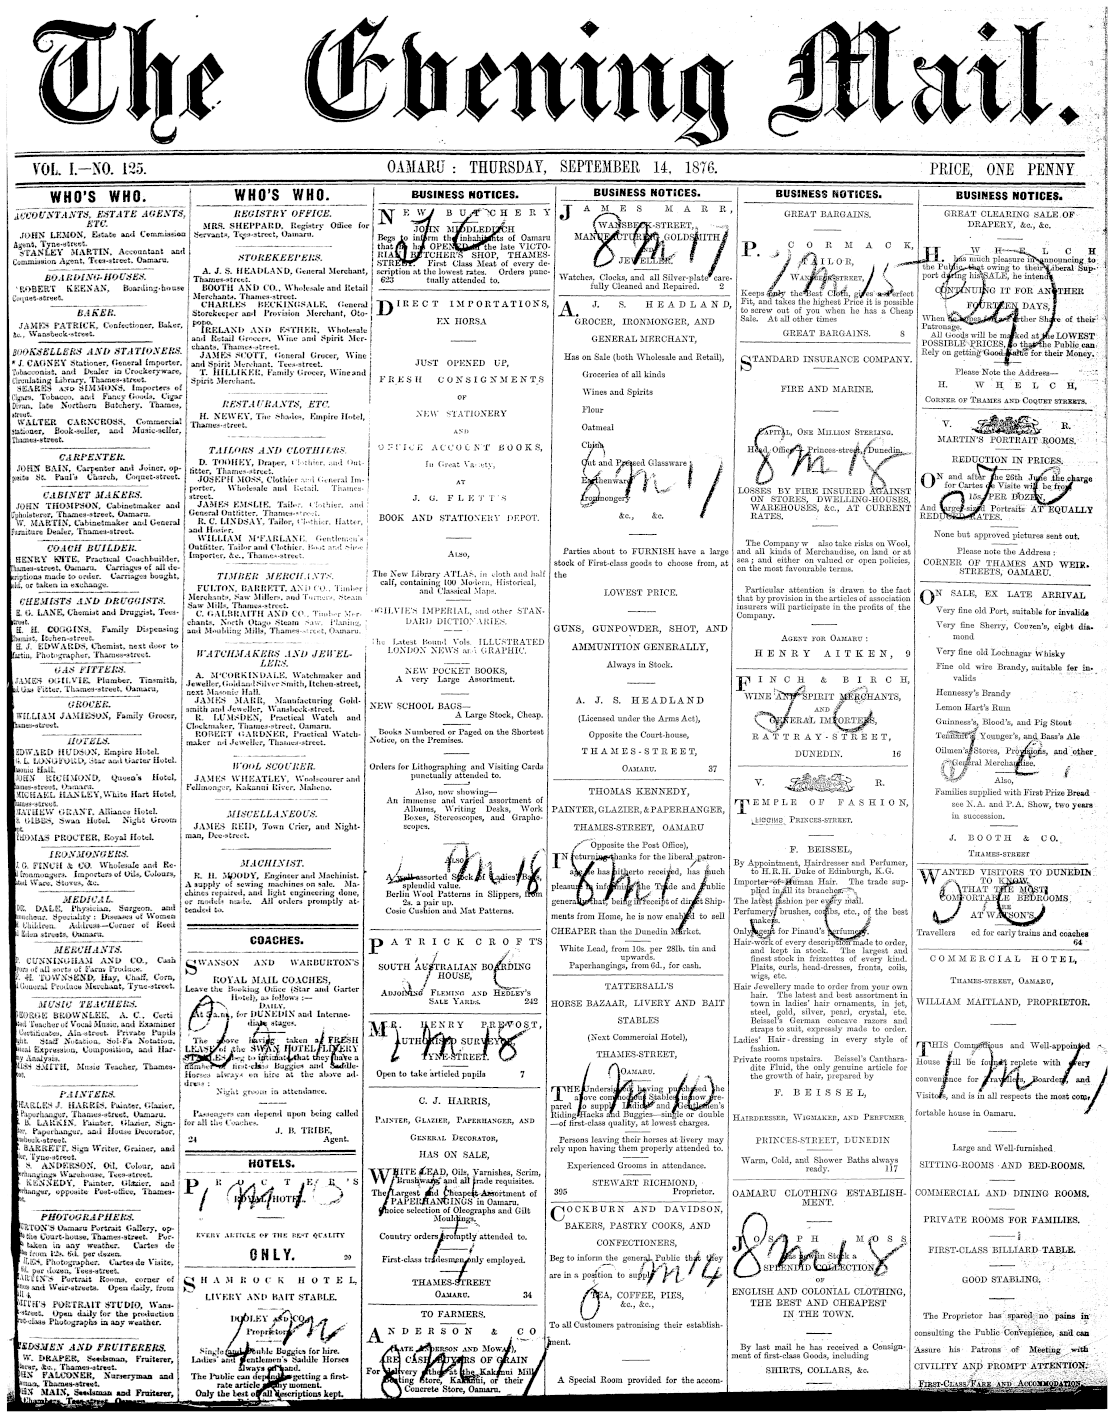 The Evening Mail.
VOL. I.—NO. 125.
OAMARU : THURSDAY, SEPTEMBER 14, 1876.
PRICE, ONE PENNY
WHO'S WHO.
ACCOUNTANTS, ESTATE AGENTS,
ETC.
JOHN LEMON, Estate and Commission
Agent, Tyne-street.
STANLEY MARTIN, Accountant and
Commission Agent, Tees-street, Oamaru.
BOARDING-HOUSES.
ROBERT KEENAN, Boarding-house
Coquet-street.
BAKER.
JAMES PATRICK, Confectioner, Baker,
&c., Wansbeck-street.
BOOKSELLERS AND STATIONERS.
J. CAGNEY Stationer, General Importer,
Tobacconist, and Dealer in Crockeryware,
Circulating Library, Thames-street.
SEARES AND SIMMONS, Importers of
Cigars, Tobacco, and Fancy Goods, Cigar
Divan, late Northern Butchery, Thames,
street.
WALTER CARNCROSS, Commercial
Stationer, Book-seller, and Music-seller,
Thames-street.
CARPENTER.
JOHN BAIN, Carpenter and Joiner, op-
posite St. Paul's Church, Coquet-street.
CABINET MAKERS.
JOHN THOMPSON, Cabinetmaker and
Upholsterer, Thames-street, Oamaru.
W. MARTIN, Cabinetmaker and General
Furniture Dealer, Thames-street.
COACH BUILDER.
HENRY KITE, Practical Coachbuilder,
Thames-street, Oamaru. Carriages of all de-
scriptions made to order. Carriages bought,
sold, or taken in exchange.
CHEMISTS AND DRUGGISTS.
E. G. LANE, Chemist and Druggist, Tees-
street.
H. H. COGGINS, Family Dispensing
Chemist, Itchen-street.
H. J. EDWARDS, Chemist, next door to
Martin, Photographer, Thames-street.
GAS FITTERS.
JAMES OGILVIE, Plumber, Tinsmith,
and Gas Fitter, Thames-street, Oamaru,
GROCER.
WILLIAM JAMIESON, Family Grocer,
Thames-street.
HOTELS.
EDWARD HUDSON, Empire Hotel.
G. L. LONGFORD, Star and Garter Hotel.
Masonic Hall.
JOHN RICHMOND, Queen's Hotel,
Thames-street, Oamaru.
MICHAEL HANLEY, White Hart Hotel,
Thames-street.
MATHEW GRANT, Alliance Hotel.
GIBBS, Swan Hotel. Night Groom
THOMAS PROCTER, Royal Hotel.
IRONMONGERS.
G. FINCH & CO. Wholesale and Re-
tail Ironmongers. Importers of Oils, Colours,
and Ware, Stoves, &c.
MEDICAL.
DR. DALE, Physician, Surgeon, and
Accoucheur. Speciality: Diseases of Women
and Children. Address—Corner of Reed
and Eden streets, Oamaru.
MERCHANTS.
CUNNINGHAM AND CO., Cash
buyers of all sorts of Farm Produce.
H. TOWNSEND, Hay, Chaff, Corn,
and General Produce Merchant, Tyne-street.
MUSIC TEACHERS.
GEORGE BROWNLEE, A. C., Certi
ted Teacher of Vocal Music, and Examiner
Certificates, Aln-street. Private Pupils
Staff Notation, Sol-Fa Notation,
Vocal Expression, Composition, and Har-
mony Analysis.
MISS SMITH, Music Teacher, Thames-
street.
PAINTERS.
CHARLES J. HARRIS, Painter, Glazier,
Paperhanger, Thames-street, Oamaru.
B. LARKIN, Painter, Glazier, Sign-
writer, Paperhanger, and House Decorator,
Wansbeck-street.
BARRETT, Sign Writer, Grainer, and
Tyne-street.
S. ANDERSON, Oil, Colour, and
Paperhangings Warehouse, Tees-street.
KENNEDY, Painter, Glazier, and
Paperhanger, opposite Post-office, Thames-
PHOTOGRAPHERS.
BURTON'S Oamaru Portrait Gallery, op-
the Court-house, Thames-street. Por-
taken in any weather. Cartes de
from 12s. 6d. per dozen.
Photographer. Cartes de Visite,
per dozen, Tees-street.
MARTIN'S Portrait Rooms, corner of
and Weir-streets. Open daily, from
SMITH'S PORTRAIT STUDIO, Wans-
street. Open daily for the production
first-class Photographs in any weather.
SEEDSMEN AND FRUITERERS.
W. DRAPER, Seedsman, Fruiterer,
&c., Thames-street.
JOHN FALCONER, Nurseryman and
Seedsman, Thames-street.
JOHN MAIN, Seedsman and Fruiterer,
WHO'S WHO.
REGISTRY OFFICE.
MRS. SHEPPARD, Registry Office for
Servants, Tees-street, Oamaru.
STOREKEEPERS.
A. J. S. HEADLAND, General Merchant,
Thames-street.
BOOTH AND CO., Wholesale and Retail
Merchants, Thames-street.
CHARLES BECKINGSALE, General
Storekeeper and Provision Merchant, Oto-
popo.
IRELAND AND ESTHER, Wholesale
and Retail Grocers, Wine and Spirit Mer-
chants, Thames-street.
JAMES SCOTT, General Grocer, Wine
and Spirit Merchant, Tees-street.
T. HILLIKER, Family Grocer, Wine and
Spirit Merchant.
RESTAURANTS, ETC.
H. NEWEY, The Shades, Empire Hotel,
Thames-street.
TAILORS AND CLOTHIERS.
D. TOOHEY, Draper, Clothier, and Out-
fitter, Thames-street.
JOSEPH MOSS, Clothier and General Im-
porter, Wholesale and Retail. Thames-
street.
JAMES EMSLIE, Tailor, Clothier, and
General Outfitter, Thames-street.
R. C. LINDSAY, Tailor, Clothier, Hatter,
and Hosier.
WILLIAM McFARLANE, Gentlemen's
Outfitter, Tailor and Clothier, Boot and Shoe
Importer, &c., Thames-street.
TIMBER MERCHANTS.
FULTON, BARRETT, AND CO., Timber
Merchants, Saw Millers, and Turners, Steam
Saw Mills, Thames-street.
C. GALBRAITH AND CO., Timber Mer-
chants, North Otago Steam Saw, Planing,
and Moulding Mills, Thames-street, Oamaru.
WATCHMAKERS AND JEWEL-
LERS.
A. McCORKINDALE, Watchmaker and
Jeweller, Gold and Silver Smith, Itchen-street,
next Masonic Hall.
JAMES MARR, Manufacturing Gold-
smith and Jeweller, Wansbeck-street.
R. LUMSDEN, Practical Watch and
Clockmaker, Thames-street, Oamaru.
ROBERT GARDNER, Practical Watch-
maker nd Jeweller, Thames-street.
WOOL SCOURER.
JAMES WHEATLEY, Woolscourer and
Fellmonger, Kakanui River, Maheno.
MISCELLANEOUS.
JAMES REID, Town Crier, and Night-
man, Dee-street.
MACHINIST.
R. H. MOODY, Engineer and Machinist.
A supply of sewing machines on sale. Ma-
chines repaired, and light engineering done,
or models made. All orders promptly at-
tended to.
COACHES.
SWANSON AND WARBURTON'S
ROYAL MAIL COACHES,
Leave the Booking Office (Star and Garter
Hotel), as follows :—
DAILY.
At 8 a.m., for DUNEDIN and Interme-
diate stages.
The above having taken a FRESH
LEASE of the SWAN HOTEL LIVERY
STABLES, beg to intimate that they have a
number of first-class Buggies and Saddle-
Horses always on hire at the above ad-
dress :
Night groom in attendance.
Passengers can depend upon being called
for all the Coaches.
J. B. TRIBE,
24 Agent.
HOTELS.
PROCTER'S
ROYAL HOTEL.
EVERY ARTICLE OF THE BEST QUALITY
ONLY. 20
SHAMROCK HOTEL,
LIVERY AND BAIT STABLE.
DOOLEY AND CO.,
Proprietors.
Single and Double Buggies for hire.
Ladies' and Gentlemen's Saddle Horses
always on hand.
The Public can depend on getting a first-
rate article any moment.
Only the best of all descriptions kept.
BUSINESS NOTICES.
NEW BUTCHERY
JOHN MIDDLEDITCH
Begs to inform the inhabitants of Oamaru
that he has OPENED the late VICTO-
RIA BUTCHER'S SHOP, THAMES-
STREET. First Class Meat of every de-
scription at the lowest rates. Orders punc-
623 tually attended to.
DIRECT IMPORTATIONS,
EX HORSA
JUST OPENED UP,
FRESH CONSIGNMENTS
OF
NEW STATIONERY
AND
OFFICE ACCOUNT BOOKS,
In Great Variety,
AT
J. G. FLETT'S
BOOK AND STATIONERY DEPOT.
Also,
The New Library ATLAS, in cloth and half
calf, containing 100 Modern, Historical,
and Classical Maps.
OGILVIE'S IMPERIAL, and other STAN-
DARD DICTIONARIES.
The Latest Bound Vols. ILLUSTRATED
LONDON NEWS and GRAPHIC.
NEW POCKET BOOKS,
A very Large Assortment.
NEW SCHOOL BAGS—
A Large Stock, Cheap.
Books Numbered or Paged on the Shortest
Notice, on the Premises.
Orders for Lithographing and Visiting Cards
punctually attended to.
Also, now showing—
An immense and varied assortment of
Albums, Writing Desks, Work
Boxes, Stereoscopes, and Grapho-
scopes.
ALSO
A well assorted Stock of Ladies' Bags,
splendid value.
Berlin Wool Patterns in Slippers, from
2s. a pair up.
Cosie Cushion and Mat Patterns.
PATRICK CROFTS
SOUTH AUSTRALIAN BOARDING
HOUSE,
ADJOINING FLEMING AND HEDLEY'S
SALE YARDS. 242
MR. HENRY PREVOST,
AUTHORISED SURVEYOR
TYNE-STREET.
Open to take articled pupils 7
C. J. HARRIS,
PAINTER, GLAZIER, PAPERHANGER, AND
GENERAL DECORATOR,
HAS ON SALE,
WHITE LEAD, Oils, Varnishes, Scrim,
Brushware, and all trade requisites.
The Largest and Cheapest Assortment of
PAPERHANGINGS in Oamaru.
Choice selection of Oleographs and Gilt
Mouldings.
Country orders promptly attended to.
First-class tradesmen only employed.
THAMES-STREET
OAMARU. 34
TO FARMERS.
ANDERSON & CO
(LATE ANDERSON AND MOWAT),
ARE CASH BUYERS OF GRAIN
For delivery either at the Kakanui Mill
Boating Store, Kakanui, or their
Concrete Store, Oamaru.
BUSINESS NOTICES.
JAMES MARR,
WANSBECK-STREET,
MANUFACTURING GOLDSMITH
JEWELLER.
Watches, Clocks, and all Silver-plate care-
fully Cleaned and Repaired. 2
A. J. S. HEADLAND,
GROCER, IRONMONGER, AND
GENERAL MERCHANT,
Has on Sale (both Wholesale and Retail),
Groceries of all kinds
Wines and Spirits
Flour
Oatmeal
China
Cut and Pressed Glassware
Earthenware
Ironmongery
&c., &c.
Parties about to FURNISH have a large
stock of First-class goods to choose from, at
the
LOWEST PRICE.
GUNS, GUNPOWDER, SHOT, AND
AMMUNITION GENERALLY,
Always in Stock.
A. J. S. HEADLAND
(Licensed under the Arms Act),
Opposite the Court-house,
THAMES-STREET,
OAMARU. 37
THOMAS KENNEDY,
PAINTER, GLAZIER, & PAPERHANGER,
THAMES-STREET, OAMARU
Opposite the Post Office),
IN returning thanks for the liberal patron-
age he has hitherto received, has much
pleasure informing the Trade and Public
generally that being in receipt of direct Ship-
ments from Home, he is now enabled to sell
CHEAPER than the Dunedin Market.
White Lead, from 10s. per 28lb, tin and
upwards.
Paperhangings, from 6d., for cash.
TATTERSALL'S
HORSE BAZAAR, LIVERY AND BAIT
STABLES
(Next Commercial Hotel),
THAMES-STREET,
OAMARU.
THE Undersigned having purchased the
above commodious Stables is now pre-
pared to supply Ladies' and Gentlemen's
Riding Hacks and Buggies—single or double
—of first-class quality, at lowest charges.
Persons leaving their horses at livery may
rely upon having them properly attended to.
Experienced Grooms in attendance.
STEWART RICHMOND,
395 Proprietor.
COCKBURN AND DAVIDSON,
BAKERS, PASTRY COOKS, AND
CONFECTIONERS,
Beg to inform the general Public that they
are in a position to supply
TEA, COFFEE, PIES,
&c., &c.,
To all Customers patronising their establish-
ment.
A Special Room provided for the accom-
BUSINESS NOTICES.
GREAT BARGAINS.
P. CORMACK,
TAILOR,
WANSBECK-STREET,
Keeps only the Best Cloth, gives a Perfect
Fit, and takes the highest Price it is possible
to screw out of you when he has a Cheap
Sale. At all other times
GREAT BARGAINS. 8
STANDARD INSURANCE COMPANY.
FIRE AND MARINE.
CAPITAL, ONE MILLION STERLING.
Head Office, Princes-street, Dunedin.
LOSSES BY FIRE INSURED AGAINST
ON STORES, DWELLING-HOUSES,
WAREHOUSES, &c., AT CURRENT
RATES.
The Company w also take risks on Wool,
and all kinds of Merchandise, on land or at
sea ; and either on valued or open policies,
on the most favorable terms.
Particular attention is drawn to the fact
that by provision in the articles of association
insurers will participate in the profits of the
Company.
AGENT FOR OAMARU :
HENRY AITKEN, 9
FINCH & BIRCH,
WINE AND SPIRIT MERCHANTS,
AND
GENERAL IMPORTERS,
RATTRAY-STREET,
DUNEDIN. 16
V. R.
TEMPLE OF FASHION,
PRINCES-STREET.
F. BEISSEL,
By Appointment, Hairdresser and Perfumer,
to H.R.H. Duke of Edinburgh, K.G.
Importer of Human Hair. The trade sup-
plied in all its branches.
The latest fashion per every mail.
Perfumery, brushes, combs, etc., of the best
makers.
Only agent for Pinaud's Perfumery
Hair-work of every description made to order,
and kept in stock. The largest and
finest stock in frizzettes of every kind.
Plaits, curls, head-dresses, fronts, coils,
wigs, etc.
Hair Jewellery made to order from your own
hair. The latest and best assortment in
town in ladies' hair ornaments, in jet,
steel, gold, silver, pearl, crystal, etc.
Beissel's German concave razors and
straps to suit, expressly made to order.
Ladies' Hair-dressing in every style of
fashion.
Private rooms upstairs. Beissel's Canthara-
dite Fluid, the only genuine article for
the growth of hair, prepared by
F. BEISSEL,
HAIRDRESSER, WIGMAKER, AND PERFUMER
PRINCES-STREET, DUNEDIN
Warm, Cold, and Shower Baths always
ready. 117
OAMARU CLOTHING ESTABLISH-
MENT.
JOSEPH MOSS
Has now in Stock a
SPLENDID COLLECTION
OF
ENGLISH AND COLONIAL CLOTHING,
THE BEST AND CHEAPEST
IN THE TOWN.
By last mail he has received a Consign-
ment of first-class Goods, including
SHIRTS, COLLARS, &c.
BUSINESS NOTICES.
GREAT CLEARING SALE OF
DRAPERY, &c., &c.
H. WHELCH
has much pleasure in announcing to
the Public, that owing to their Liberal Sup-
port during his SALE, he intends
CONTINUING IT FOR ANOTHER
FOURTEEN DAYS,
When he hopes for a further Share of their
Patronage.
All Goods will be marked at the LOWEST
POSSIBLE PRICES, so that the Public can
Rely on getting Good Value for their Money.
Please Note the Address—
H. WHELCH,
CORNER OF THAMES AND COQUET STREETS.
V. R.
MARTIN'S PORTRAIT ROOMS.
REDUCTION IN PRICES.
ON and after the 26th June the charge
for Cartes de Visite will be from
15s. PER DOZEN,
And Larger-sized Portraits AT EQUALLY
REDUCED RATES.
None but approved pictures sent out.
Please note the Address :
CORNER OF THAMES AND WEIR-
STREETS, OAMARU.
ON SALE, EX LATE ARRIVAL
Very fine old Port, suitable for invalids
Very fine Sherry, Cozven's, eight dia-
mond
Very fine old Lochnagar Whisky
Fine old wire Brandy, suitable for in-
valids
Hennessy's Brandy
Lemon Hart's Rum
Guinness's, Blood's, and Pig Stout
Tennant's, Younger's, and Bass's Ale
Oilmen's Stores, Provisions, and other
General Merchandise.
Also,
Families supplied with First Prize Bread
see N.A. and P.A. Show, two years
in succession.
J. BOOTH & CO.
THAMES-STREET
WANTED VISITORS TO DUNEDIN
TO KNOW
THAT THE MOST
COMFORTABLE BEDROOMS
ARE
AT WATSON'S.
Travellers ed for early trains and coaches
64
COMMERCIAL HOTEL,
THAMES-STREET, OAMARU,
WILLIAM MAITLAND, PROPRIETOR.
THIS Commodious and Well-appointed
House will be found replete with every
convenience for Travellers, Boarders, and
Visitors, and is in all respects the most com-
fortable house in Oamaru.
Large and Well-furnished
SITTING-ROOMS AND BED-ROOMS.
COMMERCIAL AND DINING ROOMS.
PRIVATE ROOMS FOR FAMILIES.
FIRST-CLASS BILLIARD TABLE.
GOOD STABLING,
The Proprietor has spared no pains in
consulting the Public Convenience, and can
Assure his Patrons of Meeting with
CIVILITY AND PROMPT ATTENTION.
FIRST-CLASS FARE AND ACCOMMODATION.